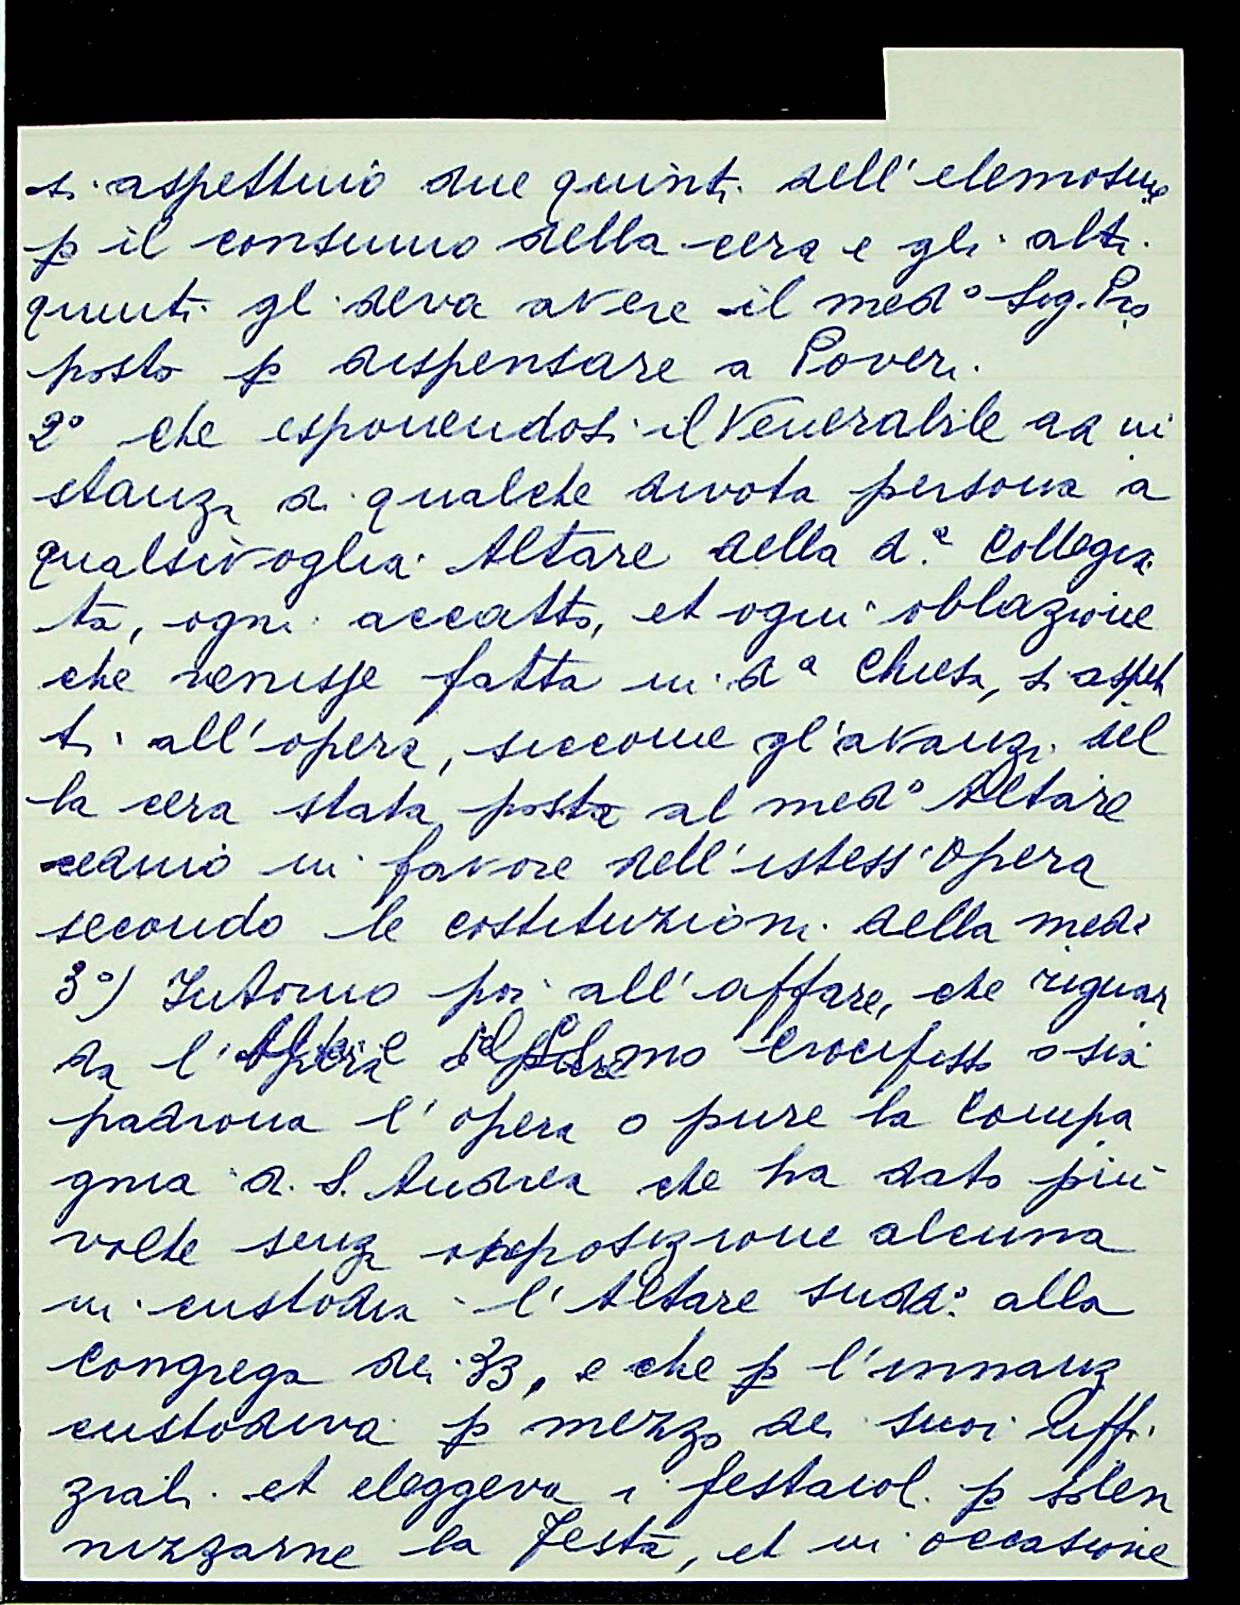 si aspettino due quinti dell'elemosine
p il consumo della cera e gli altri
quinti gl deva avere il med° Sig. Pro
posto p dispensare a Poveri.
2° che esponendosi il Venerabile ad in
stanza di qualche divota persona a
qualsivoglia Altare della d.ª Collegia
ta, ogni accatto, et ogni oblazione
che venisse fatta in d.ª Chiesa, si aspet
ti all'opera, siccome gl'avanzi del
la cera stata posta al med° Altare
cedino in favore dell'istess'opera
secondo le costituzioni della med:
3°) Intorno poi all'affare, che riguar
da l' Crocifisso o sia
padrona l'opera o pure la Compa
gnia di S. Andrea che ha dato più
volte senza opposizione alcuna
in custodia l'Altare sudd:° alla
Congrega dei 33, e che p l'innanzi
custodiva p mezzo dei suoi uffi
ziali et eleggeva i festaioli p solen
nizzarne la Festa, et in occasione